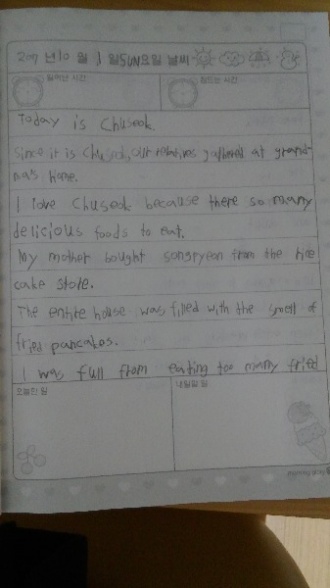 2017 년 10 월 1 일 SUN요일 날씨
일어난 시간 잠드는 시간
Today is Chuseok.
Since it is Chuseok, our relatives gathered at grand-
mas home.
I love Chuseok because there so many
delicious foods to eat.
My mother bought songpyeon from the rice
cake store.
The entire house was filled with the smell of
fried pancakes.
I was full from eating too many fried
오늘의 일 내일할 일